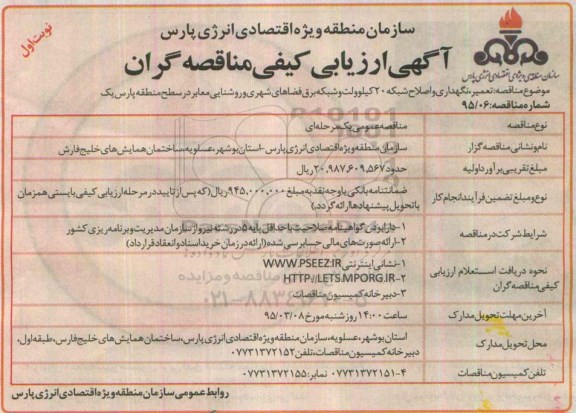 نوبت اول
سازمان منطقه ویژه اقتصادی انرژی پارس
آگهی ارزیابی کیفی مناقصه گران
سازمان منطقه ویژه اقتصادی انرژی پارس
موضوع مناقصه: تعمیر، نگهداری و اصلاح شبکه ۲۰ کیلوولت و شبکه برق فضاهای شهری و روشنایی معابر در سطح منطقه پارس یک
شماره مناقصه: ۹۵/۰۶
نوع مناقصه
مناقصه عمومی یک مرحله ای
نام و نشانی مناقصه گزار
سازمان منطقه ویژه اقتصادی انرژی پارس - استان بوشهر، عسلویه، ساختمان همایش های خلیج فارش
مبلغ تقریبی برآورد اولیه
حدود ۲۰،۹۸۷،۶۰۹،۵۶۷ ریال
نوع و مبلغ تضمین فرآیند انجام کار
ضمانتنامه بانکی یا وجه نقد به مبلغ ۹۴۵،۰۰۰،۰۰۰ ریال (که پس از تایید در مرحله ارزیابی کیفی بایستی همزمان
با تحویل پیشنهادها ارائه گردد.)
شرایط شرکت در مناقصه
۱- دارا بودن گواهینامه صلاحیت با حداقل پایه ۵ در رشته نیرو از سازمان مدیریت و برنامه ریزی کشور
۲- ارائه صورت های مالی حسابرسی شده (ارائه در زمان خرید اسناد و انعقاد قرارداد)
نحوه دریافت استعلام ارزیابی
کیفی مناقصه گران
۱- نشانی اینترنتی WWW.PSEEZ.IR
۲- HTTP://LETS.MPORG.IR
۳- دبیرخانه کمیسیون مناقصات
آخرین مهلت تحویل مدارک
ساعت ۱۴:۰۰ روز شنبه مورخ ۹۵/۰۳/۰۸
محل تحویل مدارک
استان بوشهر، عسلویه، سازمان منطقه ویژه اقتصادی انرژی پارس، ساختمان همایش های خلیج فارس، طبقه اول،
دبیرخانه کمیسیون مناقصات، تلفن ۰۷۷۳۱۳۷۲۱۵۲
تلفن کمیسیون مناقصات
۰۷۷۳۱۳۷۲۱۵۱-۴ نمابر: ۰۷۷۳۱۳۷۲۱۵۵
روابط عمومی سازمان منطقه ویژه اقتصادی انرژی پارس